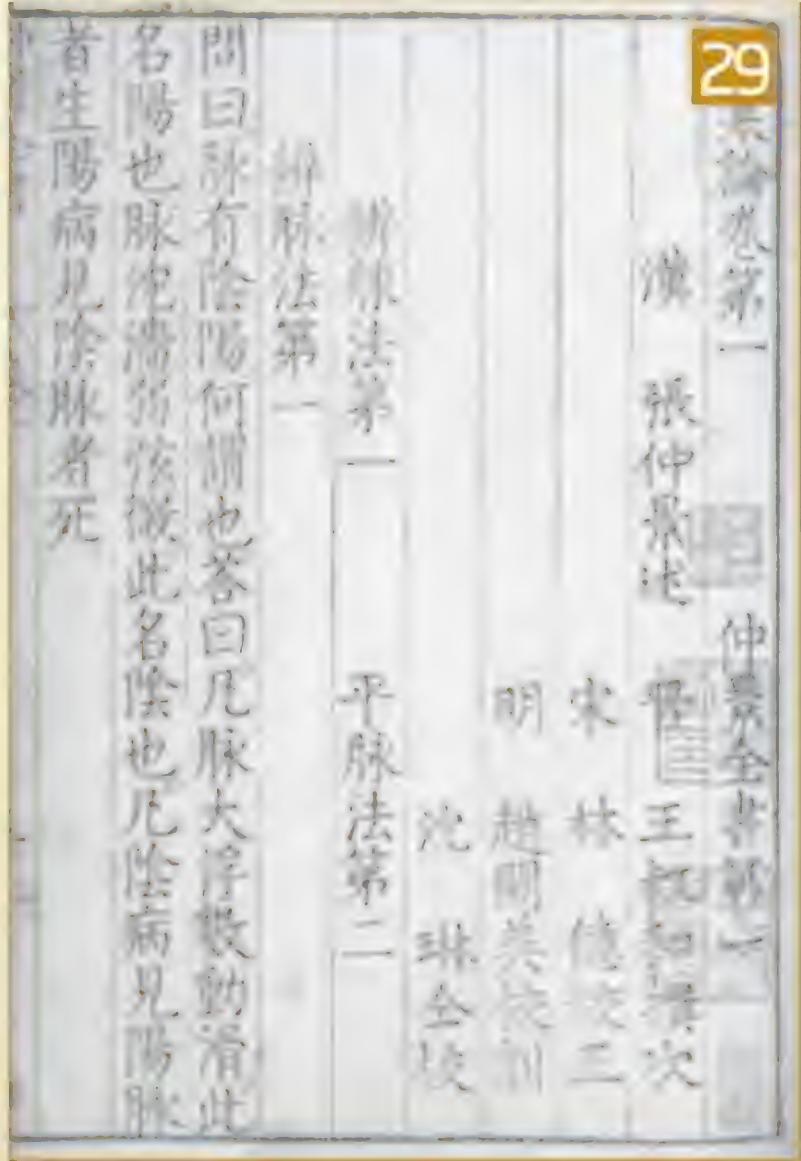 29
論卷第一 仲景全書第一
漢 張仲景述 晉 王叔和撰次
宋 林億校正
明 趙開美校刻
沈 琳仝校
辨脉法第一 平脉法第二
辨脉法第一
問曰脉有陰陽何謂也答曰凡脉大浮數動滑此
名陽也脉沈濇弱弦微此名陰也凡陰病見陽脉
者生陽病見陰脉者死